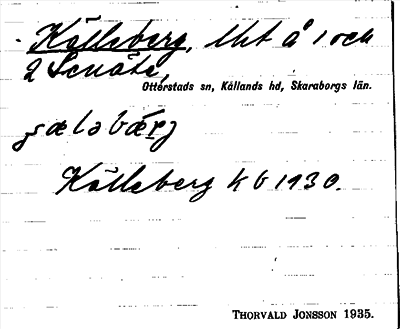 Källeberg, lht å 1 och
2 Senäte,
Otterstads sn, Kållands hd, Skaraborgs län.
Källeberg kb 1930.
THORVALD JONSSON 1935.